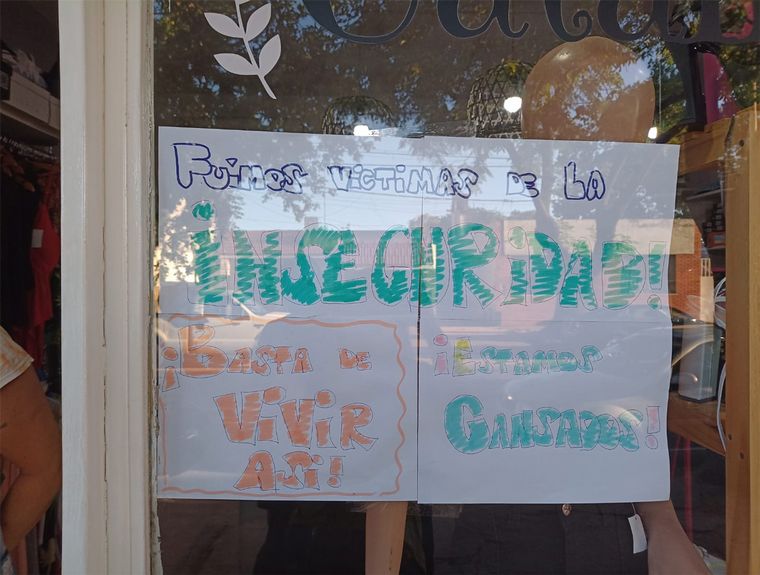 Fuimos VICTIMAS DE LA
iNSEGURiDAD!
¡BASTA DE
ViViR
ASi!
¡ESTAMOS
CANSADOS!